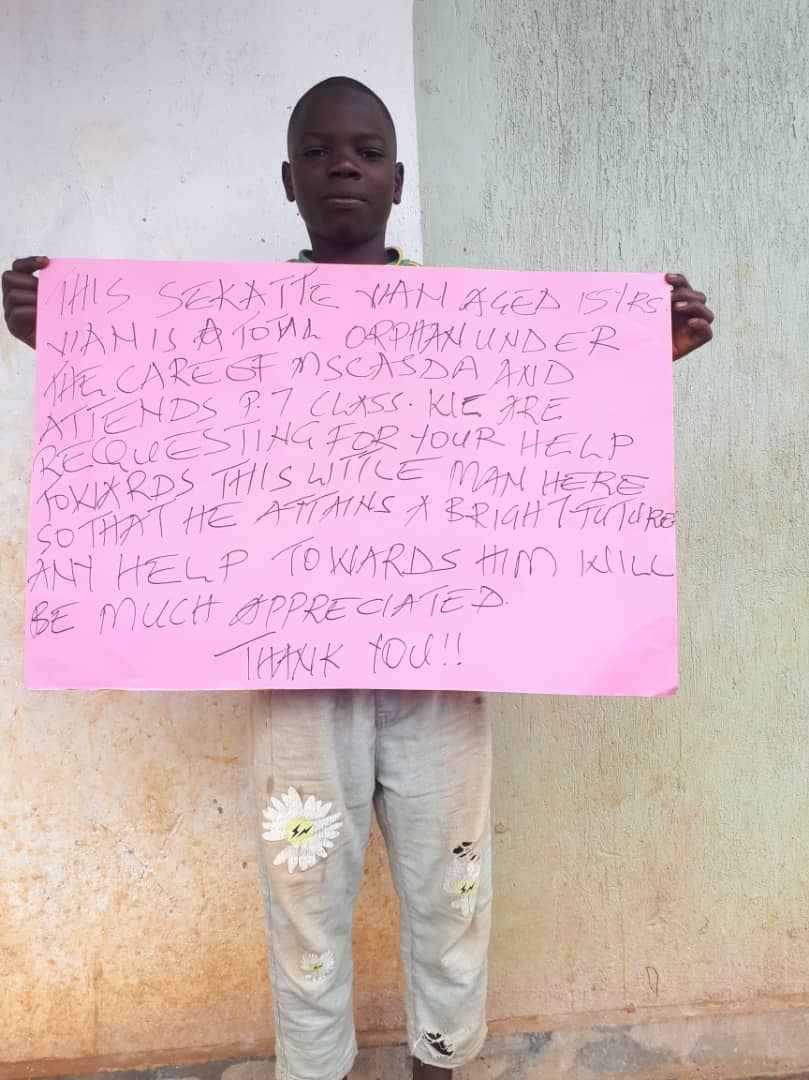 THIS SEKATTE VIAN AGED 15YRS.
VIAN IS A TOTAL ORPHAN UNDER
THE CARE OF MSCASDA AND
ATTENDS P.7 CLASS. WE ARE
REQUESTING FOR YOUR HELP
TOWARDS THIS LITTLE MAN HERE
SO THAT HE ATTAINS A BRIGHT FUTURE
ANY HELP TOWARDS HIM WILL
BE MUCH APPRECIATED.
THANK YOU!!